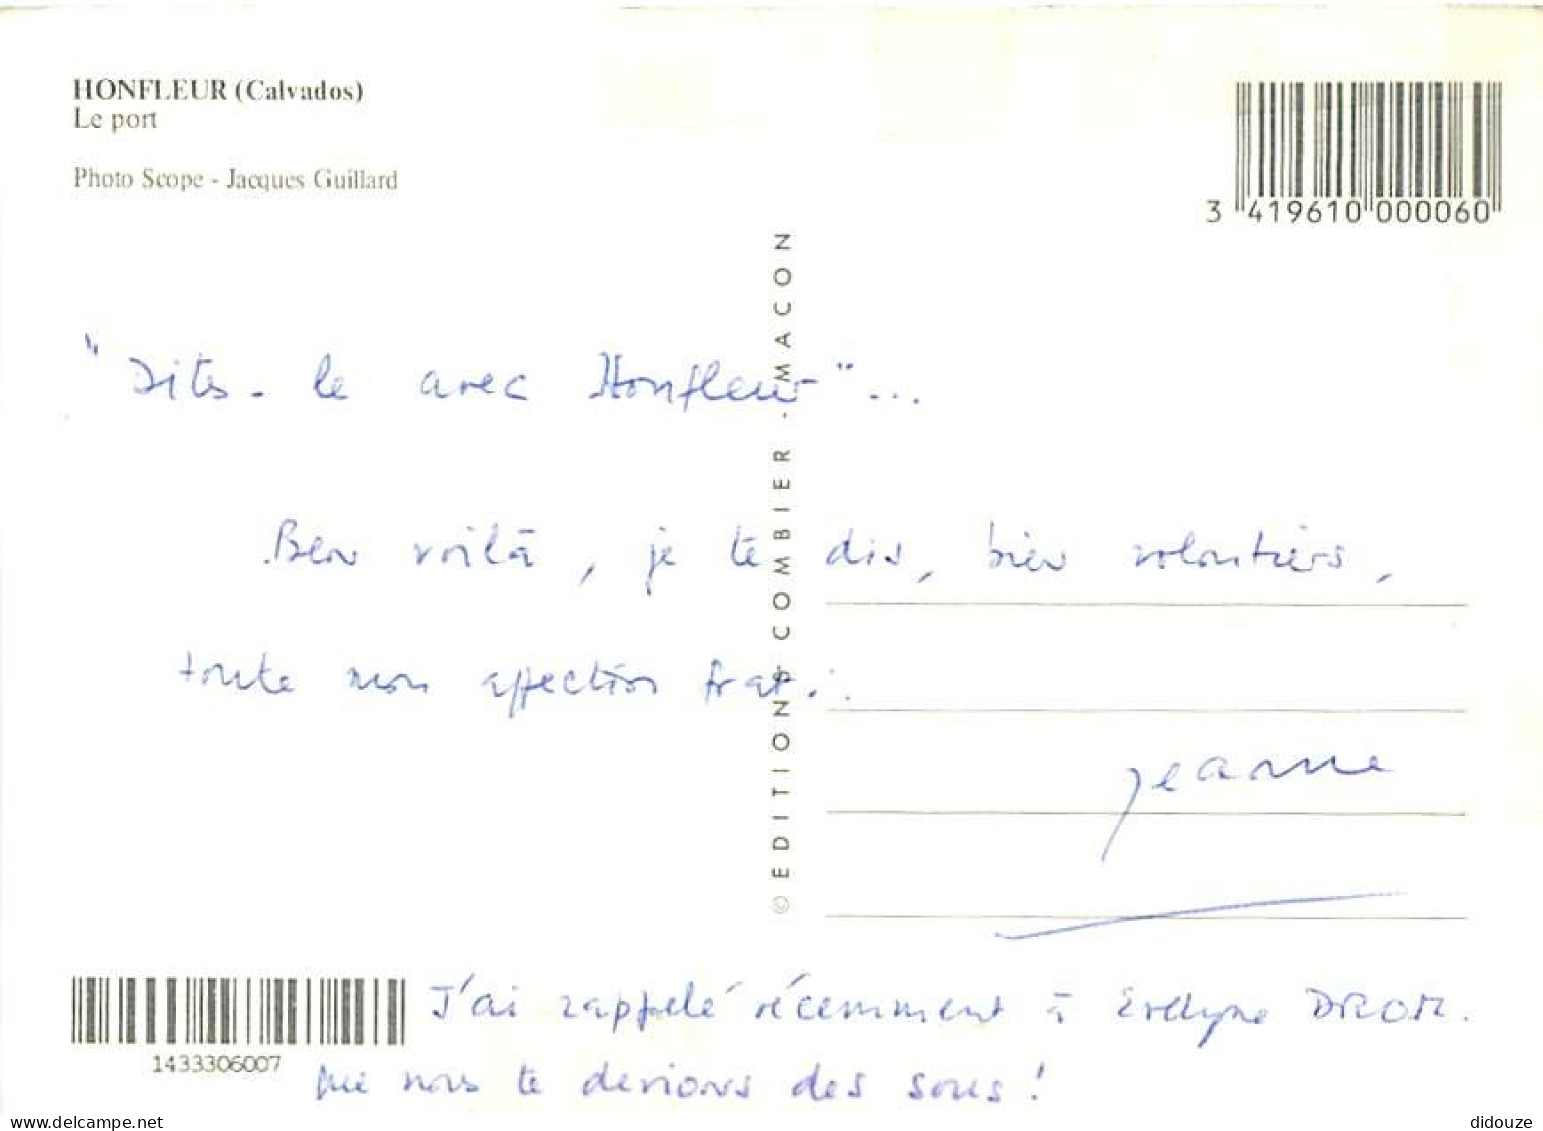 HONFLEUR (Calvados)
Le port
Photo Scope - Jacques Guillard
3 419610 000060
© EDITIONS COMBIER - MACON
"Dites-le avec Honfleur"...
Ben voilà, je te dis, bien volontiers,
toute mon affection frat..
Jeanne
J'ai rappelé récemment à Evelyne DROM.
que nous te devions des sous !
1433306007
www.delcampe.net
didouze